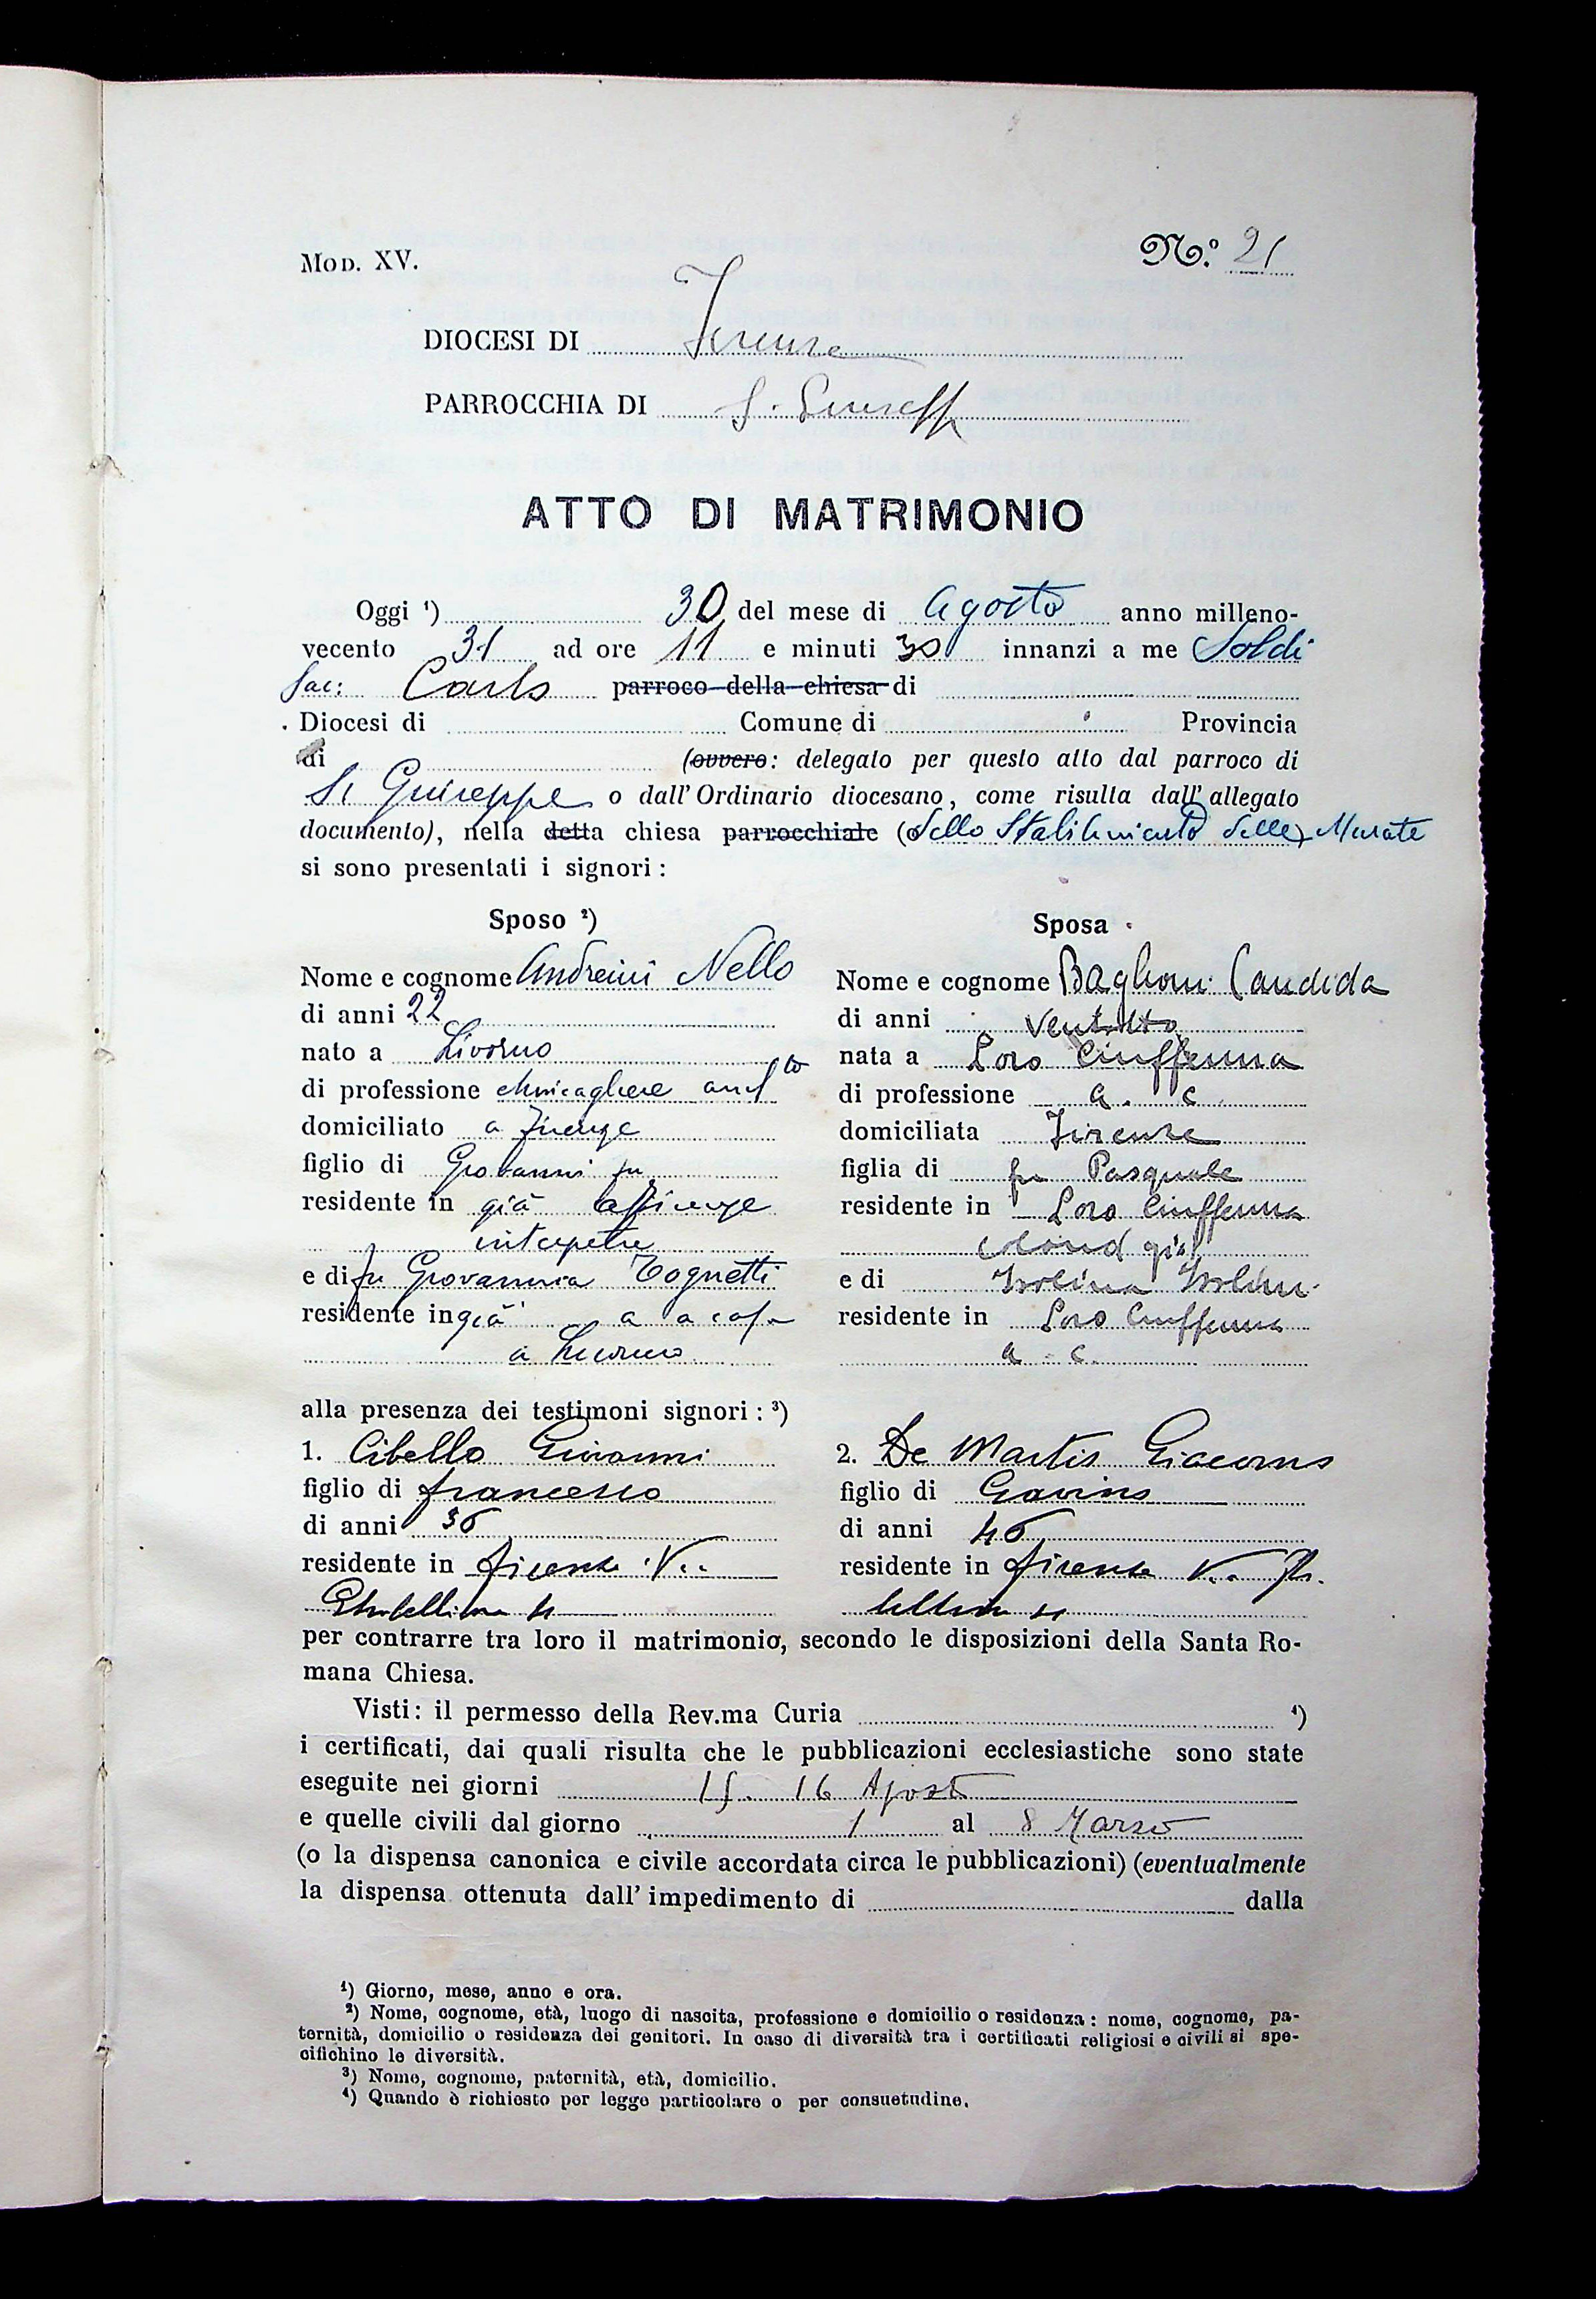 Mod. XV.
N.º 21
DIOCESI DI Firenze
PARROCCHIA DI S. Giuseppe
ATTO DI MATRIMONIO
Oggi ¹) 30 del mese di Agosto anno milleno-
vecento 31 ad ore 11 e minuti 30 innanzi a me Soldi
Sac: Carlo parroco della chiesa di
Diocesi di Comune di Provincia
di (ovvero: delegato per questo atto dal parroco di
S. Giuseppe o dall' Ordinario diocesano, come risulta dall' allegato
documento), nella detta chiesa parrocchiale (dello Stabilimento delle) Murate
si sono presentati i signori:
Sposo ²)
Nome e cognome Andreini Nello
di anni 22
nato a Livorno
di professione chincagliere
domiciliato a Firenze
figlio di Giovanni fu
residente in già a Firenze
e di fu Giovannina Tognetti
residente in già a casa
a Livorno
Sposa
Nome e cognome Baglioni Candida
di anni Ventotto
nata a Loro Ciuffenna
di professione a. c.
domiciliata Firenze
figlia di fu Pasquale
residente in Loro Ciuffenna
già
e di Isolina
residente in Loro Ciuffenna
a. c.
alla presenza dei testimoni signori: ³)
1. Cibello Giovanni
figlio di Francesco
di anni 36
residente in Firenze Via
Ghibellina 4
2. De Martis Giacomo
figlio di Gavino
di anni 46
residente in Firenze Via Ghi
bellina 4
per contrarre tra loro il matrimonio, secondo le disposizioni della Santa Ro-
mana Chiesa.
Visti: il permesso della Rev.ma Curia ⁴)
i certificati, dai quali risulta che le pubblicazioni ecclesiastiche sono state
eseguite nei giorni 15. 16 Agosto
e quelle civili dal giorno 1 al 8 Marzo
(o la dispensa canonica e civile accordata circa le pubblicazioni) (eventualmente
la dispensa ottenuta dall' impedimento di dalla
¹) Giorno, mese, anno e ora.
²) Nome, cognome, età, luogo di nascita, professione e domicilio o residenza: nome, cognome, pa-
ternità, domicilio o residenza dei genitori. In caso di diversità tra i certificati religiosi e civili si spe-
cifichino le diversità.
³) Nome, cognome, paternità, età, domicilio.
⁴) Quando è richiesto per legge particolare o per consuetudine.